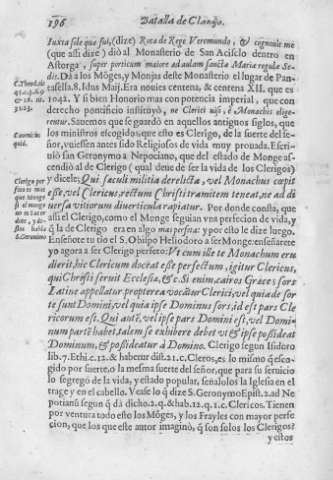 196 Batalla de Clauijo.
Iuxta sile que fui, (dize) Rota de Rege Veremundo, & cognouit me
(que assi dize) diò al Monasterio de San Acisclo dentro en
Astorga, super porticum maiore ad aulam sanctæ Mariæ regulæ Se-
dis. Dà a los Mõges, y Monjas deste Monasterio el lugar de Pan-
tasella. 8. Idus Maij. Era nouies centena, & centena XII. que es
1042. Y si bien Honorio mas con potencia imperial, que con
derecho pontificio instituyò, ne Clerici
gentur. Sauemos que se guardò en aquellos antiguos siglos, que
los ministros elcogidos, que esto es Clerigo, de la suerte del se-
ñor, vuiessen antes sido Religiosos de vida muy prouada. Escri-
uiò san Geronymo a Nepociano, que del estado de Monge as-
cendiò al de Clerigo (qual deue de ser la vida de los Clerigos)
y dicele: Qui sæculi militia derelicta, vel Monachus cœpit
esse, vel Clericus, rectum Christi tramitem teneat, ne ad di
uersa vitiorum diuerticula rapiatur. Por donde consta, que
assi el Clerigo, como el Monge seguian vna perfecion de vida, y
q̃ la de Clerigo era en algo mas perfeta: y por esto le dize luego.
Enseñote tu tio el S. Obispo Heliodoro a ser Monge: enseñarete
yo agora a ser Clerigo perfeto: Vt cum ille te Monachum eru
dierit, hic Clericum doceat esse perfectum, igitur Clericus,
qui Christi seruit Ecclesiæ, &c. Si enim, cairos Græce sors
Latine appellatur propterea vocãtur Clerici, vel quia de sor
te sunt Domini, vel quia ipse Dominus sors, id est pars Cle
ricorum est. Qui autẽ, vel ipse pars Domini est, vel Domi-
num partẽ habet, talem se exhibere debet vt & ipse possideat
Dominum, & possideatur à Domino. Clerigo segun Isidoro
lib. 7. Ethi. c. 12. & habetur dist. 21. c. Cleros, es lo mismo q̃ esco-
gido por suerte, o la mesma suerte del señor, que para su seruicio
lo segregò de la vida, y estado popular, señalolos la Iglesia en el
trage y en el cabello. Vease lo q̃ dize S. Geronymo Epist. 2. ad Ne
potianũ segun q̃ dà dicho. 2. q. & hab. 12. q. 1. c. Clericos. Tienen
por ventura todo esto los Mõges, y los Frayles con mayor perfe
cion, que los que este autor imaginò, q̃ son solos los Clerigos?
y estos
Canonis
Clerigo per
feto es mas
que monge
S. Geronimo